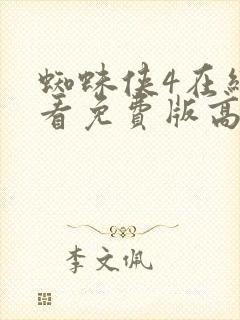 蜘蛛侠4在线
看免费版高
李文佩